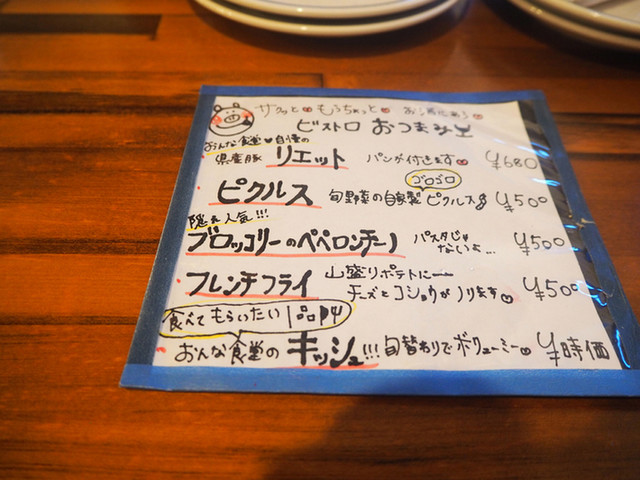 サクッと もうちょっと
ビストロ おつまみ
おんな食堂 自慢の
県産豚 リエット パンが付きます ¥680
ゴロゴロ
ピクルス 旬野菜の自家製 ピクルス ¥500
隠れ人気!!!
ブロッコリーのペペロンチーノ パスタじゃ ないよ… ¥500
フレンチフライ 山盛りポテトに ¥500
チーズとコショウがノリます
食べてもらいたい 1品
おんな食堂の キッシュ!!! 旬替わりで ボリューミー ¥時価